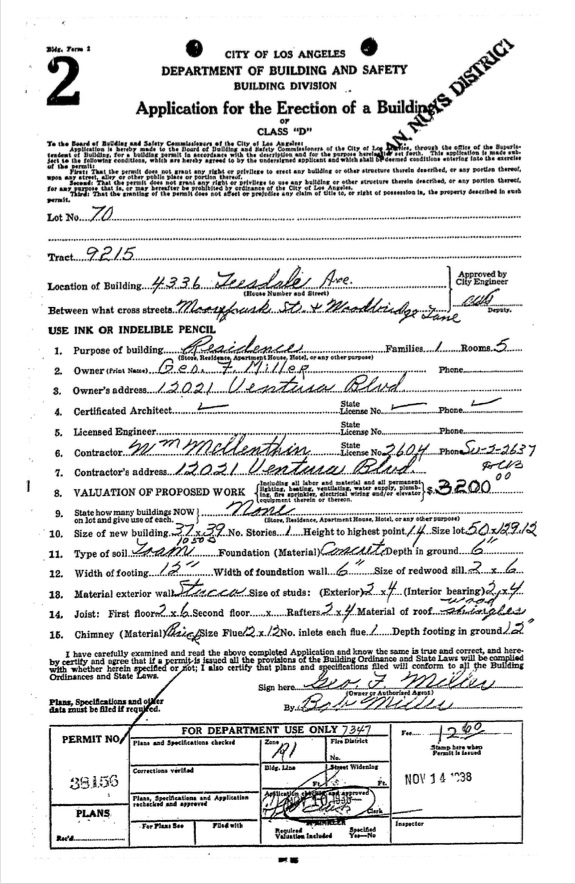 Bldg. Form 2
2
CITY OF LOS ANGELES
DEPARTMENT OF BUILDING AND SAFETY
BUILDING DIVISION
Application for the Erection of a Building
OF
CLASS "D"
AN NUYS DISTRICT
To the Board of Building and Safety Commissioners of the City of Los Angeles:
Application is hereby made to the Board of Building and Safety Commissioners of the City of Los Angeles, through the office of the Superin-
tendent of Building, for a building permit in accordance with the description and for the purpose hereinafter set forth. This application is made sub-
ject to the following conditions, which are hereby agreed to by the undersigned applicant and which shall be deemed conditions entering into the exercise
of the permit:
First: That the permit does not grant any right or privilege to erect any building or other structure therein described, or any portion thereof,
upon any street, alley or other public place or portion thereof.
Second: That the permit does not grant any right or privilege to use any building or other structure therein described, or any portion thereof,
for any purpose that is, or may hereafter be prohibited by ordinance of the City of Los Angeles.
Third: That the granting of the permit does not affect or prejudice any claim of title to, or right of possession in, the property described in such
permit.
Lot No. 70
Tract 9215
Location of Building 4336 Teesdale Ave. Approved by City Engineer
(House Number and Street)
Between what cross streets Moorpark St. & Woodbridge Lane Deputy.
USE INK OR INDELIBLE PENCIL
1. Purpose of building Residence Families 1 Rooms 5
(Store, Residence, Apartment House, Hotel, or any other purpose)
2. Owner (Print Name) Geo. F. Miller Phone
3. Owner's address 12021 Ventura Blvd
4. Certificated Architect State License No. Phone
5. Licensed Engineer State License No. Phone
6. Contractor Wm Mellenthin State License No. 2604 Phone Su-2-2637
7. Contractor's address 12021 Ventura Blvd.
8. VALUATION OF PROPOSED WORK {Including all labor and material and all permanent lighting, heating, ventilating, water supply, plumbing, fire sprinkler, electrical wiring and/or elevator equipment therein or thereon.} $ 3200 00
9. State how many buildings NOW on lot and give use of each. None
(Store, Residence, Apartment House, Hotel, or any other purpose)
10. Size of new building 37 x 39 No. Stories 1 Height to highest point 14 Size lot 50 x 129.12
11. Type of soil Loam Foundation (Material) Concrete Depth in ground 6"
12. Width of footing 12" Width of foundation wall 6" Size of redwood sill 2 x 6
13. Material exterior wall Stucco Size of studs: (Exterior) 2 x 4 (Interior bearing) 2 x 4
14. Joist: First floor 2 x 6 Second floor x Rafters 2 x 4 Material of roof wood shingles
15. Chimney (Material) Brick Size Flue 12 x 12 No. inlets each flue 1 Depth footing in ground 12"
I have carefully examined and read the above completed Application and know the same is true and correct, and here-
by certify and agree that if a permit is issued all the provisions of the Building Ordinance and State Laws will be complied
with whether herein specified or not; I also certify that plans and specifications filed will conform to all the Building
Ordinances and State Laws.
Sign here Geo. F. Miller
(Owner or Authorized Agent)
Plans, Specifications and other
data must be filed if required.
By Bob Miller
FOR DEPARTMENT USE ONLY 7347
PERMIT NO.
38156
PLANS
Rec'd
Plans and Specifications checked
Corrections verified
Plans, Specifications and Application
rechecked and approved
For Plans See Filed with
Zone R1
Fire District
No.
Bldg. Line
Ft.
Street Widening
Ft.
Application checked and approved
Clerk
SPRINKLER
Required Specified
Valuation Included Yes—No
Fee
Stamp here when
Permit is issued
NOV 14 1938
Inspector